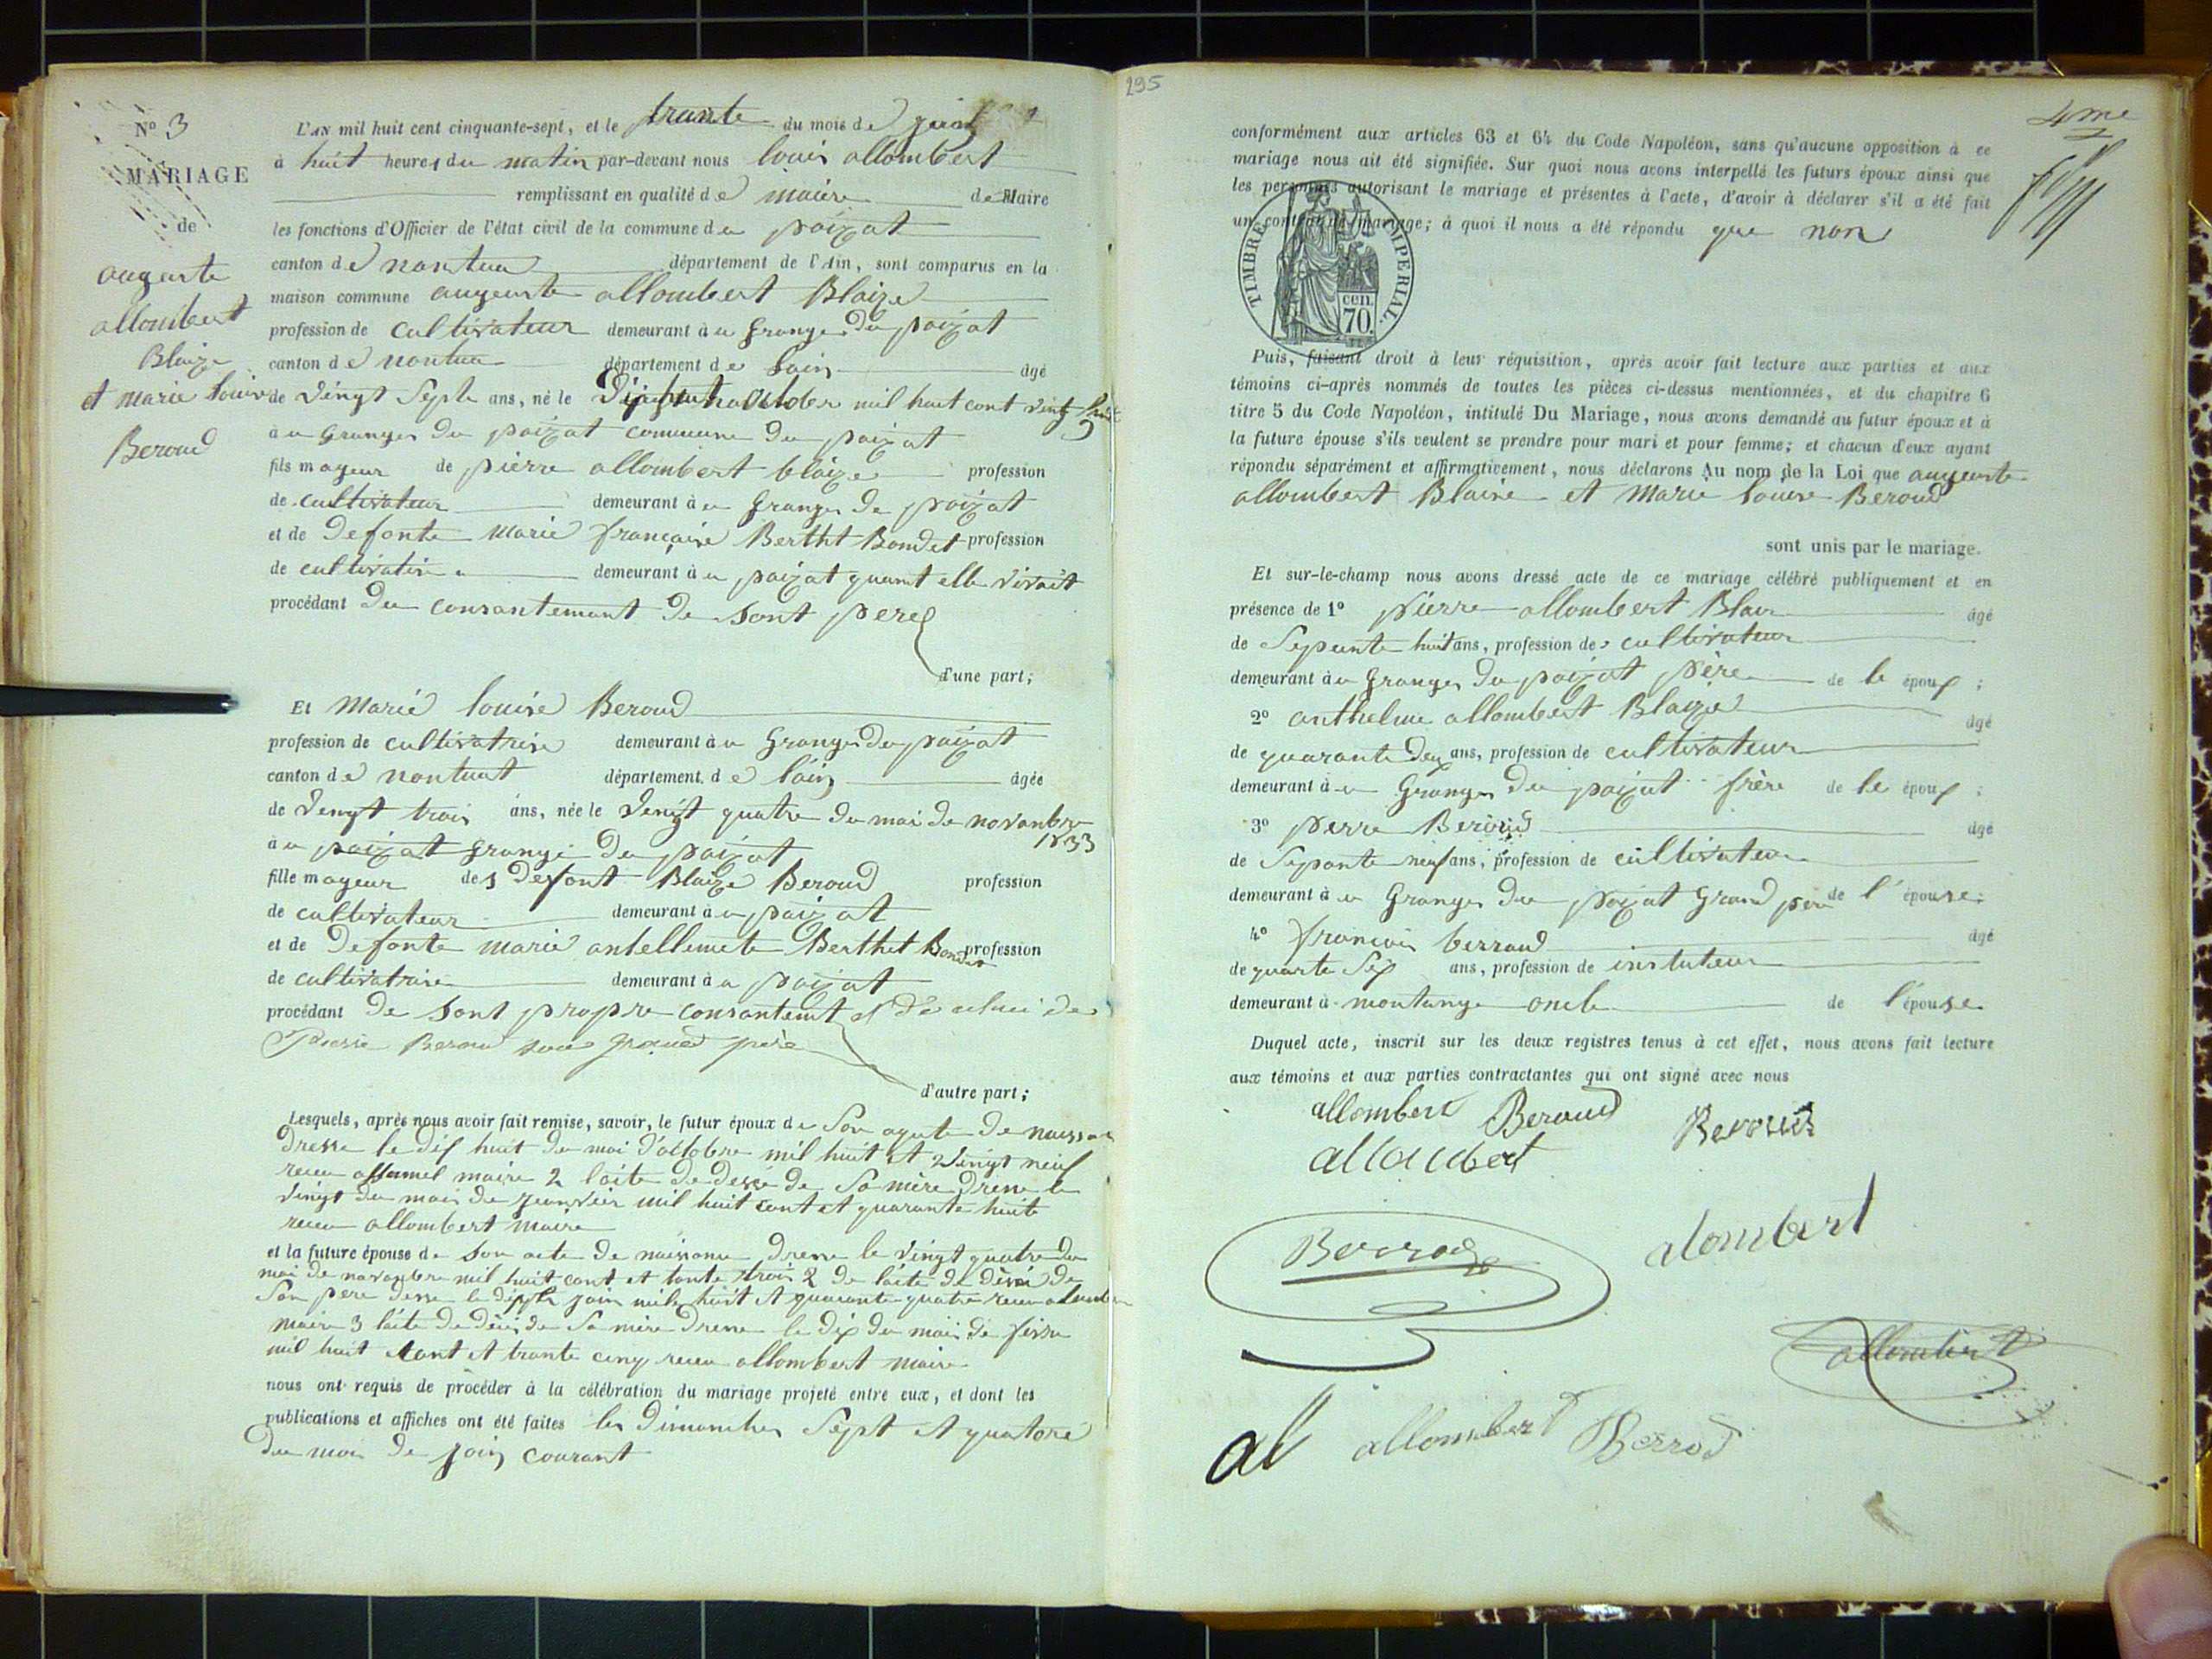 Nº 3
MARIAGE
de
auguste
allombert
Blaize
et marie louise
Beroud
L'AN mil huit cent cinquante-sept, et le trante du mois de juin
à huit heures du matin par-devant nous louis allombert
remplissant en qualité de maire de Maire
les fonctions d'Officier de l'état civil de la commune du poizat
canton de nantua département de l'Ain, sont comparus en la
maison commune auguste allombert Blaize
profession de cultivateur demeurant à u Granges du poizat
canton de nantua département de lain âgé
de vingt Septe ans, né le octobre mil huit cent vingt
à u Granges du poizat commune du poizat
fils mageur de pierre allombert blaize profession
de cultivateur demeurant à u Granges du poizat
et de Defonte marie françoise Bertht Bondet profession
de cultivatrise demeurant à u poizat quant elle vivait
procédant du consantemant de Sont pere
d'une part;
Et Marie louise Beroud
profession de cultivatrise demeurant à u Granges du poizat
canton de nantuat département de lain âgée
de vengt trois ans, née le vengt quatre du moi de novanbre
1833
à u poizat Grange du poizat
fille mageur de Defont Blaize Beroud profession
de cultivateur demeurant à u poizat
et de Defonte marie antellemete Berthet Bondet profession
de cultivatrise demeurant à u poizat
procédant de Sont propre consantemt et de celui de
Pierre Beroud son grand père
d'autre part;
Lesquels, après nous avoir fait remise, savoir, le futur époux de Son agute de naissan
Dresse le dix huit du moi d'octobre mil huit et vingt neuf
recu maire 2 laite de dessé de Sa mère dresse le
vingt du mois de janvier mil huit cent et quarante huite
recu allombert maire
et la future épouse de Son acte de naissance dresse le vingt quatre du
moi de novanbre mil huit cent et tante trois 2 de laite de désé de
Son pere desse le juin mile huit et quarante quatre recu
maire 3 laite de décé de Sa mère dresse le dix du moi de
mil huit cant et trante cinq recu allombert maire
nous ont requis de procéder à la célébration du mariage projeté entre eux, et dont les
publications et affiches ont été faites les Dimanches Sept et quatore
du moi de join courant
295
4me
conformément aux articles 63 et 64 du Code Napoléon, sans qu'aucune opposition à ce
mariage nous ait été signifiée. Sur quoi nous avons interpellé les futurs époux ainsi que
les personnes autorisant le mariage et présentes à l'acte, d'avoir à déclarer s'il a été fait
un contrat de mariage; à quoi il nous a été répondu que non
TIMBRE IMPERIAL.
cen.
70.
Puis, faisant droit à leur réquisition, après avoir fait lecture aux parties et aux
témoins ci-après nommés de toutes les pièces ci-dessus mentionnées, et du chapitre 6
titre 5 du Code Napoléon, intitulé Du Mariage, nous avons demandé au futur époux et à
la future épouse s'ils veulent se prendre pour mari et pour femme; et chacun d'eux ayant
répondu séparément et affirmativement, nous déclarons Au nom de la Loi que auguste
allombert Blaise et Marie louise Beroud
sont unis par le mariage.
Et sur-le-champ nous avons dressé acte de ce mariage célébré publiquement et en
présence de 1º pierre allombert Blaiz âgé
de Sepeante huit ans, profession de cultivateur
demeurant à u Granges du poizat père de le époux ;
2º anthelme allombert Blaize âgé
de quarante deux ans, profession de cultivateur
demeurant à u Granges du poizat frère de le époux ;
3º perre Beroud âgé
de Sepante neuf ans, profession de cultivateur
demeurant à u Granges du poizat Grand père de l'épouse;
4º françois berroud âgé
de quarte Sep ans, profession de instuteur
demeurant à montange oncle de l'épouse
Duquel acte, inscrit sur les deux registres tenus à cet effet, nous avons fait lecture
aux témoins et aux parties contractantes qui ont signé avec nous
allombert Beroud Beroud
alloubert
Berrod alombert
allombert
al allombert Berrod